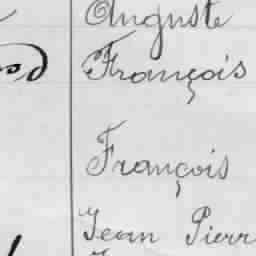 Auguste
François
François
Jean Pierr